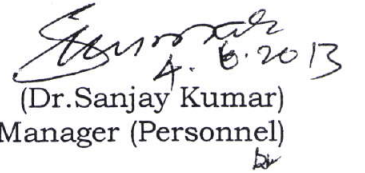 4.6.2013
(Dr.Sanjay Kumar)
Manager (Personnel)